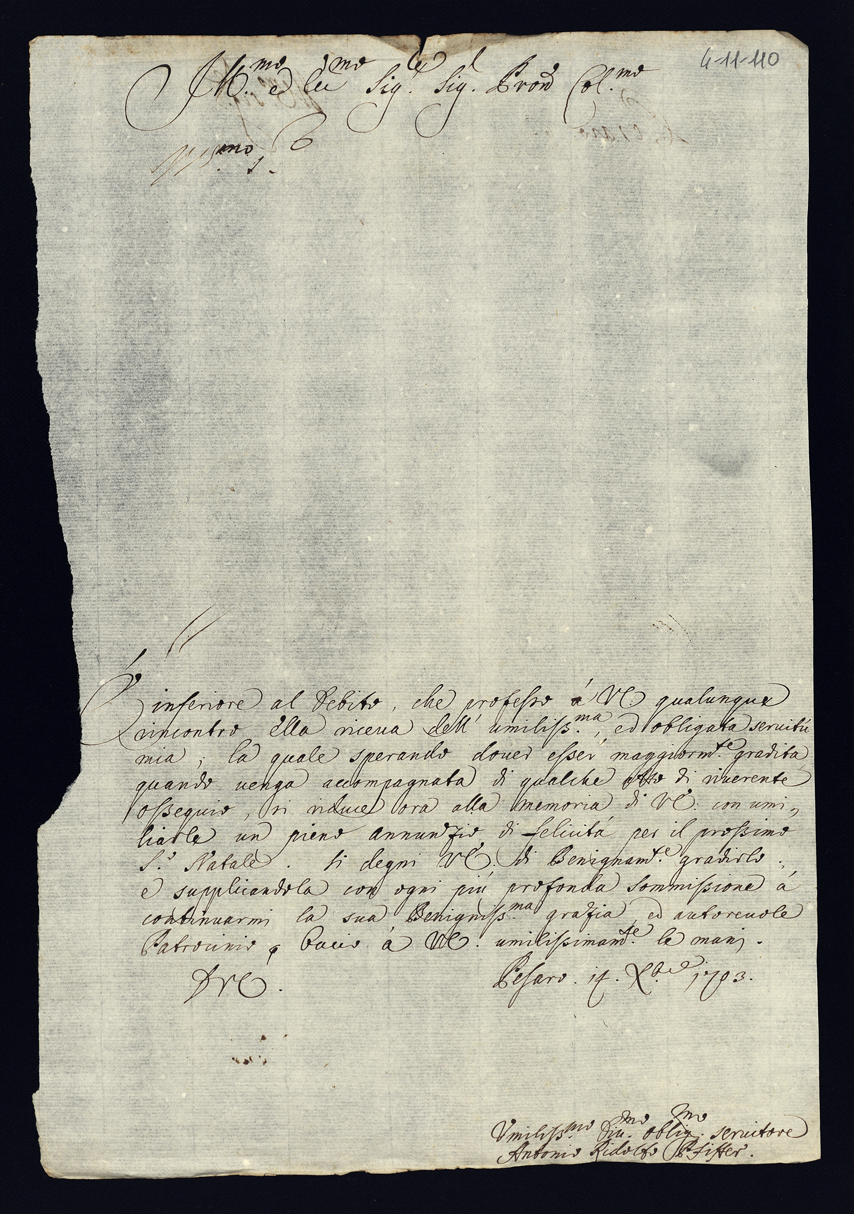 4-11-110
Ill.mo ed Ecc.mo Sig.re Sig.r Pron Col.mo
È inferiore al Debito, che professo à VE. qualunque
rincontro Ella riceva dell' umiliss.ma, ed obligata servitù
mia; la quale sperando dover esser maggiorm.te gradita
quando venga accompagnata di qualche atto di riverente
ossequio, si riduce ora alla memoria di VE. con umi,,
liarle un pieno annunzio di felicità per il prossimo
S.o Natale. Si degni VE. di Benignam.te gradirlo,
e supplicandola con ogni più profonda sommissione à
continuarmi la sua Benigniss.ma grazia, ed autorevole
Patrocinio, baccio à VE. umilissimam.te le mani.
D VE. Pesaro. 14. Xb.re 1703.
Umiliss.mo Di.mo oblig.mo servitore
Antonio Ridolfo Pfiffer.